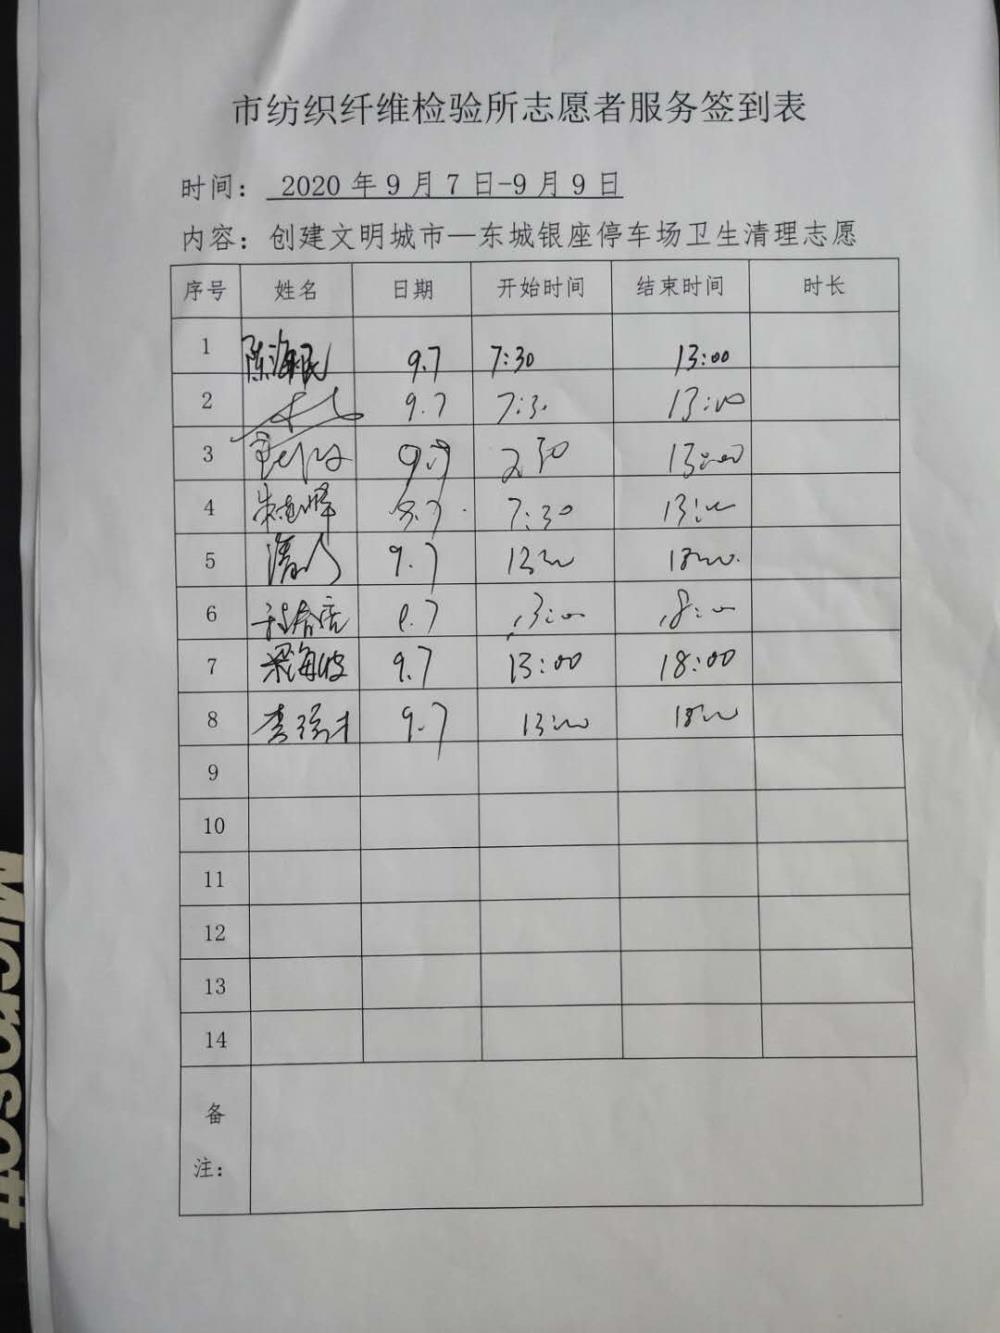 市纺织纤维检验所志愿者服务签到表
时间： 2020 年 9 月 7 日-9 月 9 日
内容：创建文明城市—东城银座停车场卫生清理志愿
序号 姓名 日期 开始时间 结束时间 时长
1 陈海民 9.7 7:30 13:00
2 9.7 7:30 13:00
3 9.7 13:00
4 9.7 7:30 13:00
5 9.7 13:00 18:00
6 9.7 13:00 18:00
7 梁海波 9.7 13:00 18:00
8 9.7 13:00 18:00
9
10
11
12
13
14
备
注：
Microsoft